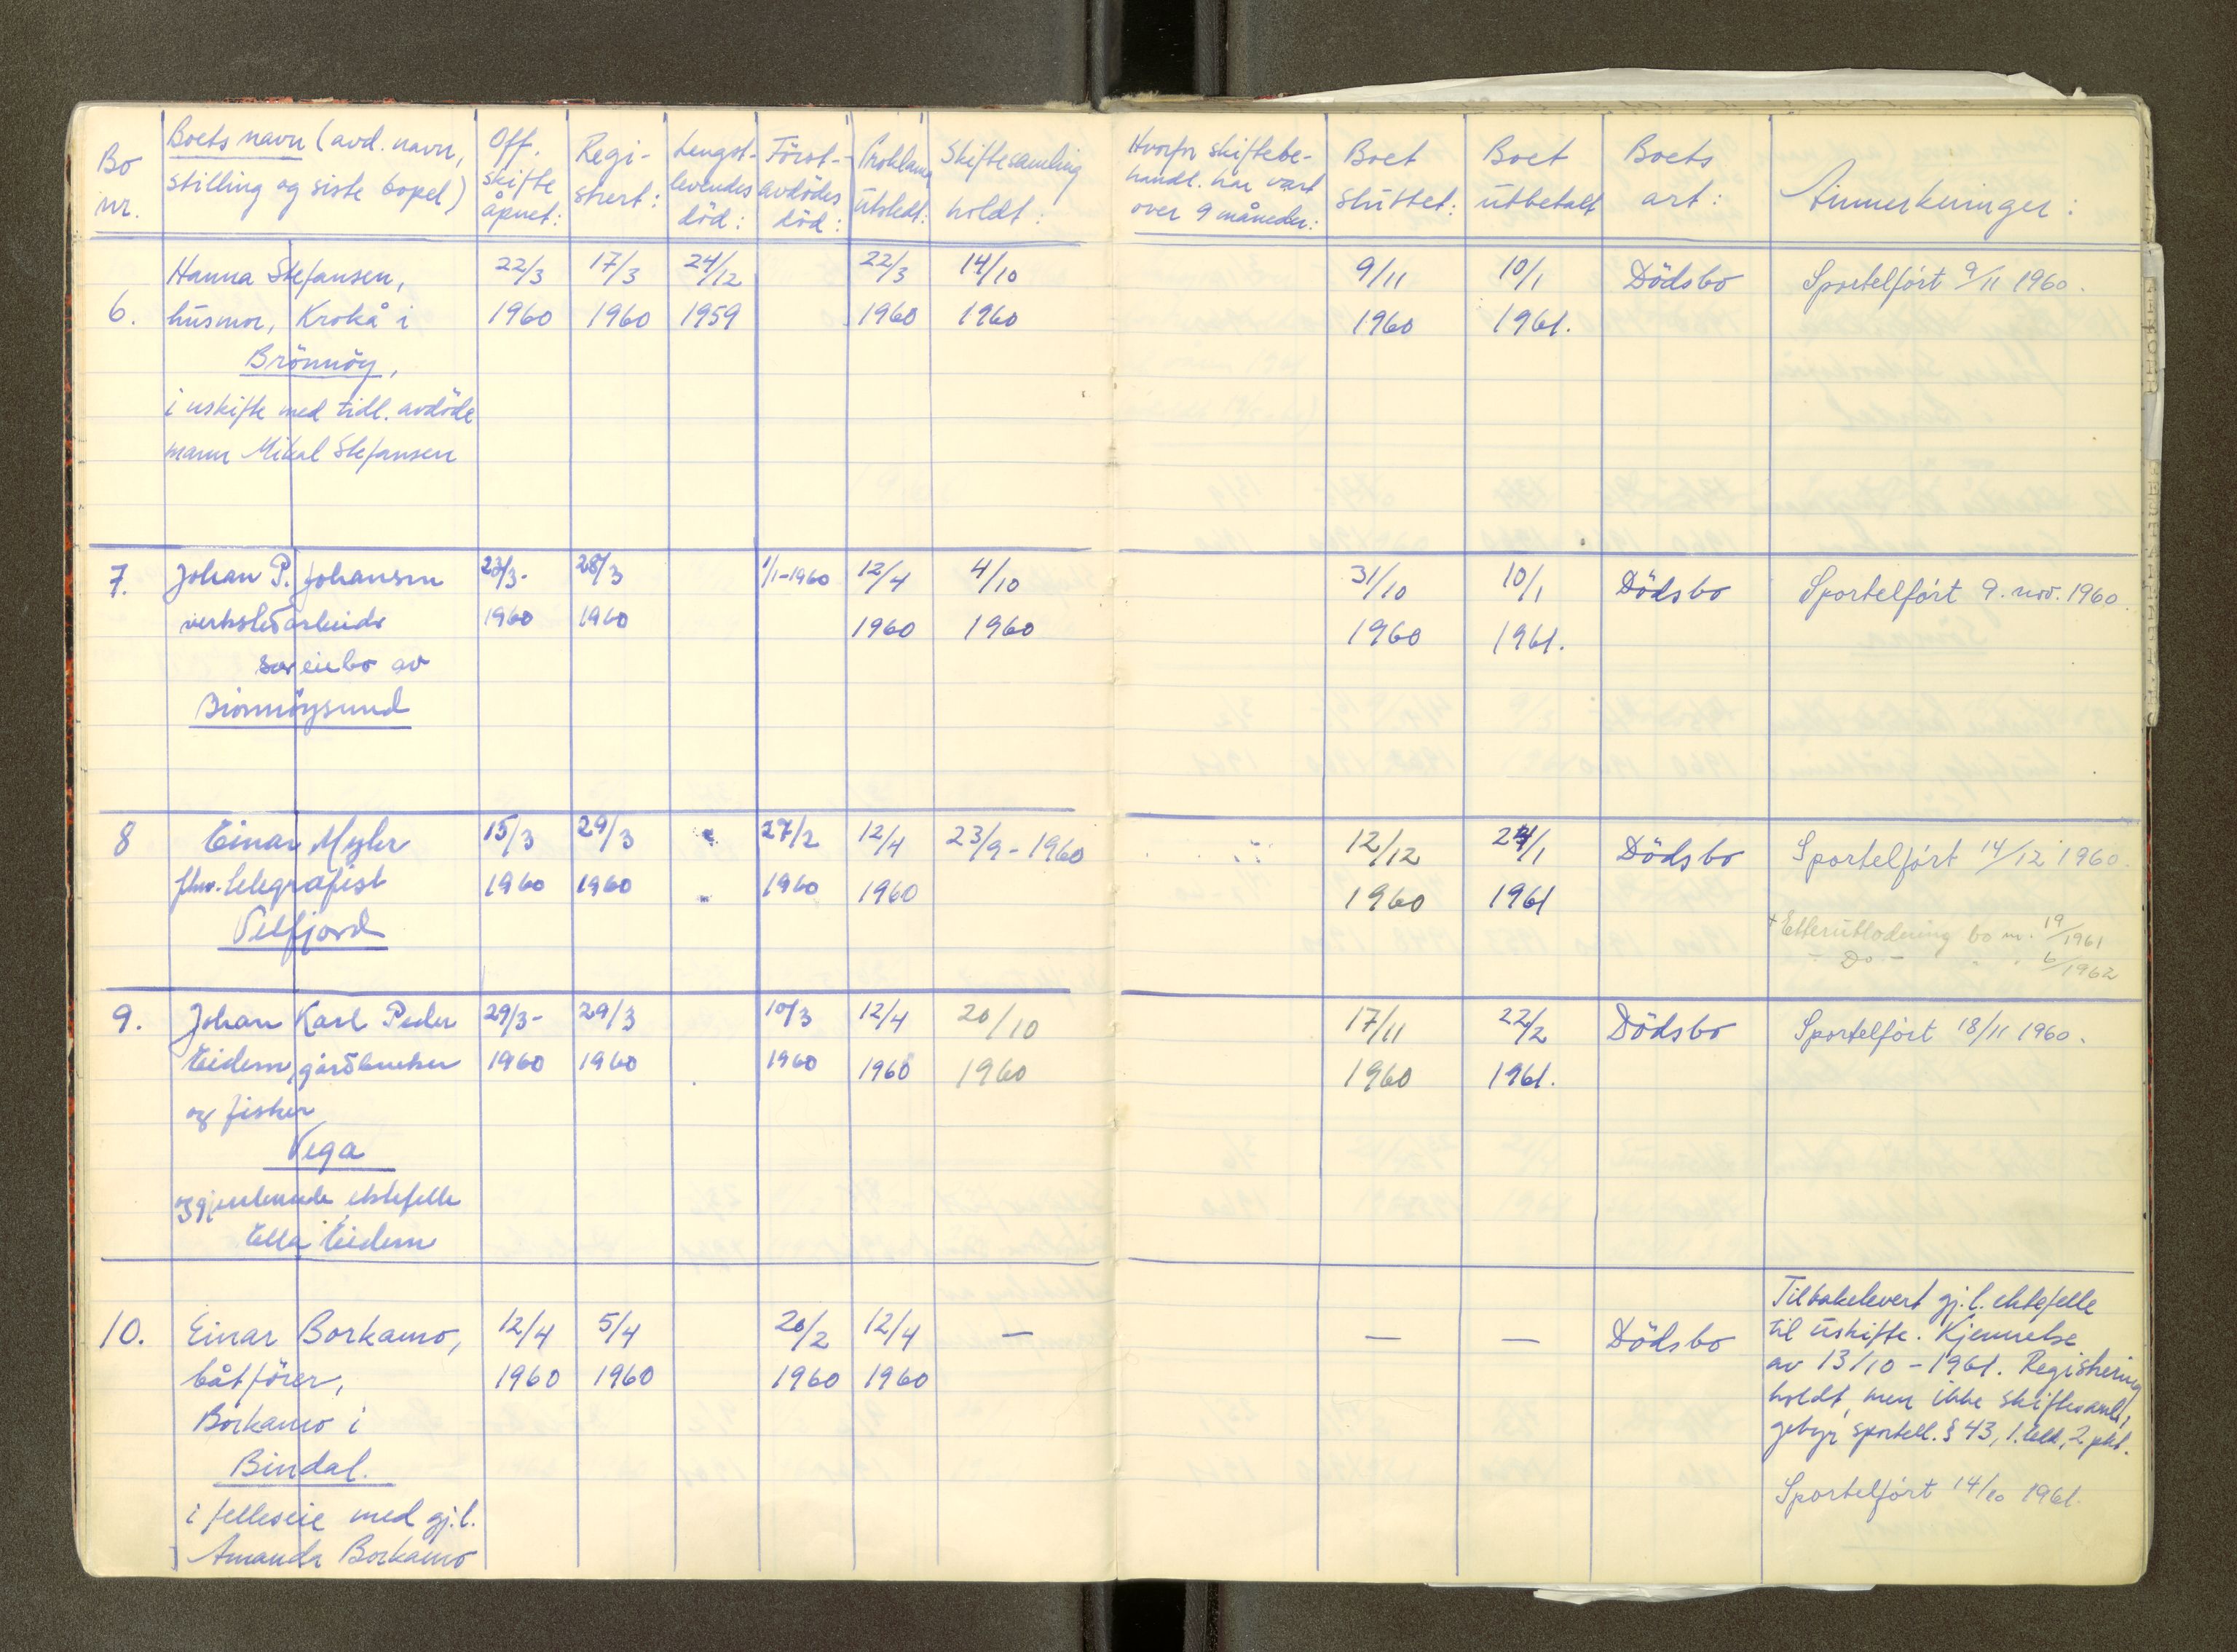 Bo nr.
Boets navn (avd. navn, stilling og siste bopel)
Off. skifte åpnet:
Regi-strert:
Lengst-levendes död:
Först-avdödes död:
Proklama utstedt:
Skiftesamling holdt:
Hvorfor skiftebe-handl. har vart over 9 måneder:
Boet sluttet:
Boet utbetalt
Boets art:
Anmerkninger:
6.
Hanna Stefansen,
husmor, Krokå i
Brönnöy,
i uskifte med tidl. avdöde
mann Mikal Stefansen
22/3 1960
17/3 1960
24/12 1959
22/3 1960
14/10 1960
9/11 1960
10/1 1961.
Dödsbo
Sportelfört 9/11 1960.
7.
Johan P. Johansen
verkstedarbeider
særeiebo av
Brönnöysund
23/3- 1960
28/3 1960
1/1-1960
12/4 1960
4/10 1960
31/10 1960
10/1 1961.
Dödsbo
Sportelfört 9. nov. 1960.
8
Einar Myhr
fhv. telegrafist
Velfjord
15/3 1960
29/3 1960
27/2 1960
12/4 1960
23/9-1960
12/12 1960
24/1 1961
Dödsbo
Sportelfört 14/12 1960.
+ Etterutlodning bo nr. 19/1961
- Do - " " 6/1962
9.
Johan Karl Peder
Eidem, gårdbruker
og fisker
Vega
og gjenlevende ektefelle
Ella Eidem
29/3- 1960
29/3 1960
10/3 1960
12/4 1960
20/10 1960
17/11 1960
22/2 1961.
Dödsbo
Sportelfört 18/11 1960.
10.
Einar Borkamo,
båtförer,
Borkamo i
Bindal.
i felleseie med gj.l.
Amanda Borkamo
12/4 1960
5/4 1960
20/2 1960
12/4 1960
—
—
—
Dödsbo
Tilbakelevert gj.l. ektefelle
til uskifte. Kjennelse
av 13/10-1961. Registrering
holdt, men ikke skiftesaml.,
gebyr sportell. § 43, 1. ledd, 2. pkt.
Sportelfört 14/10 1961.